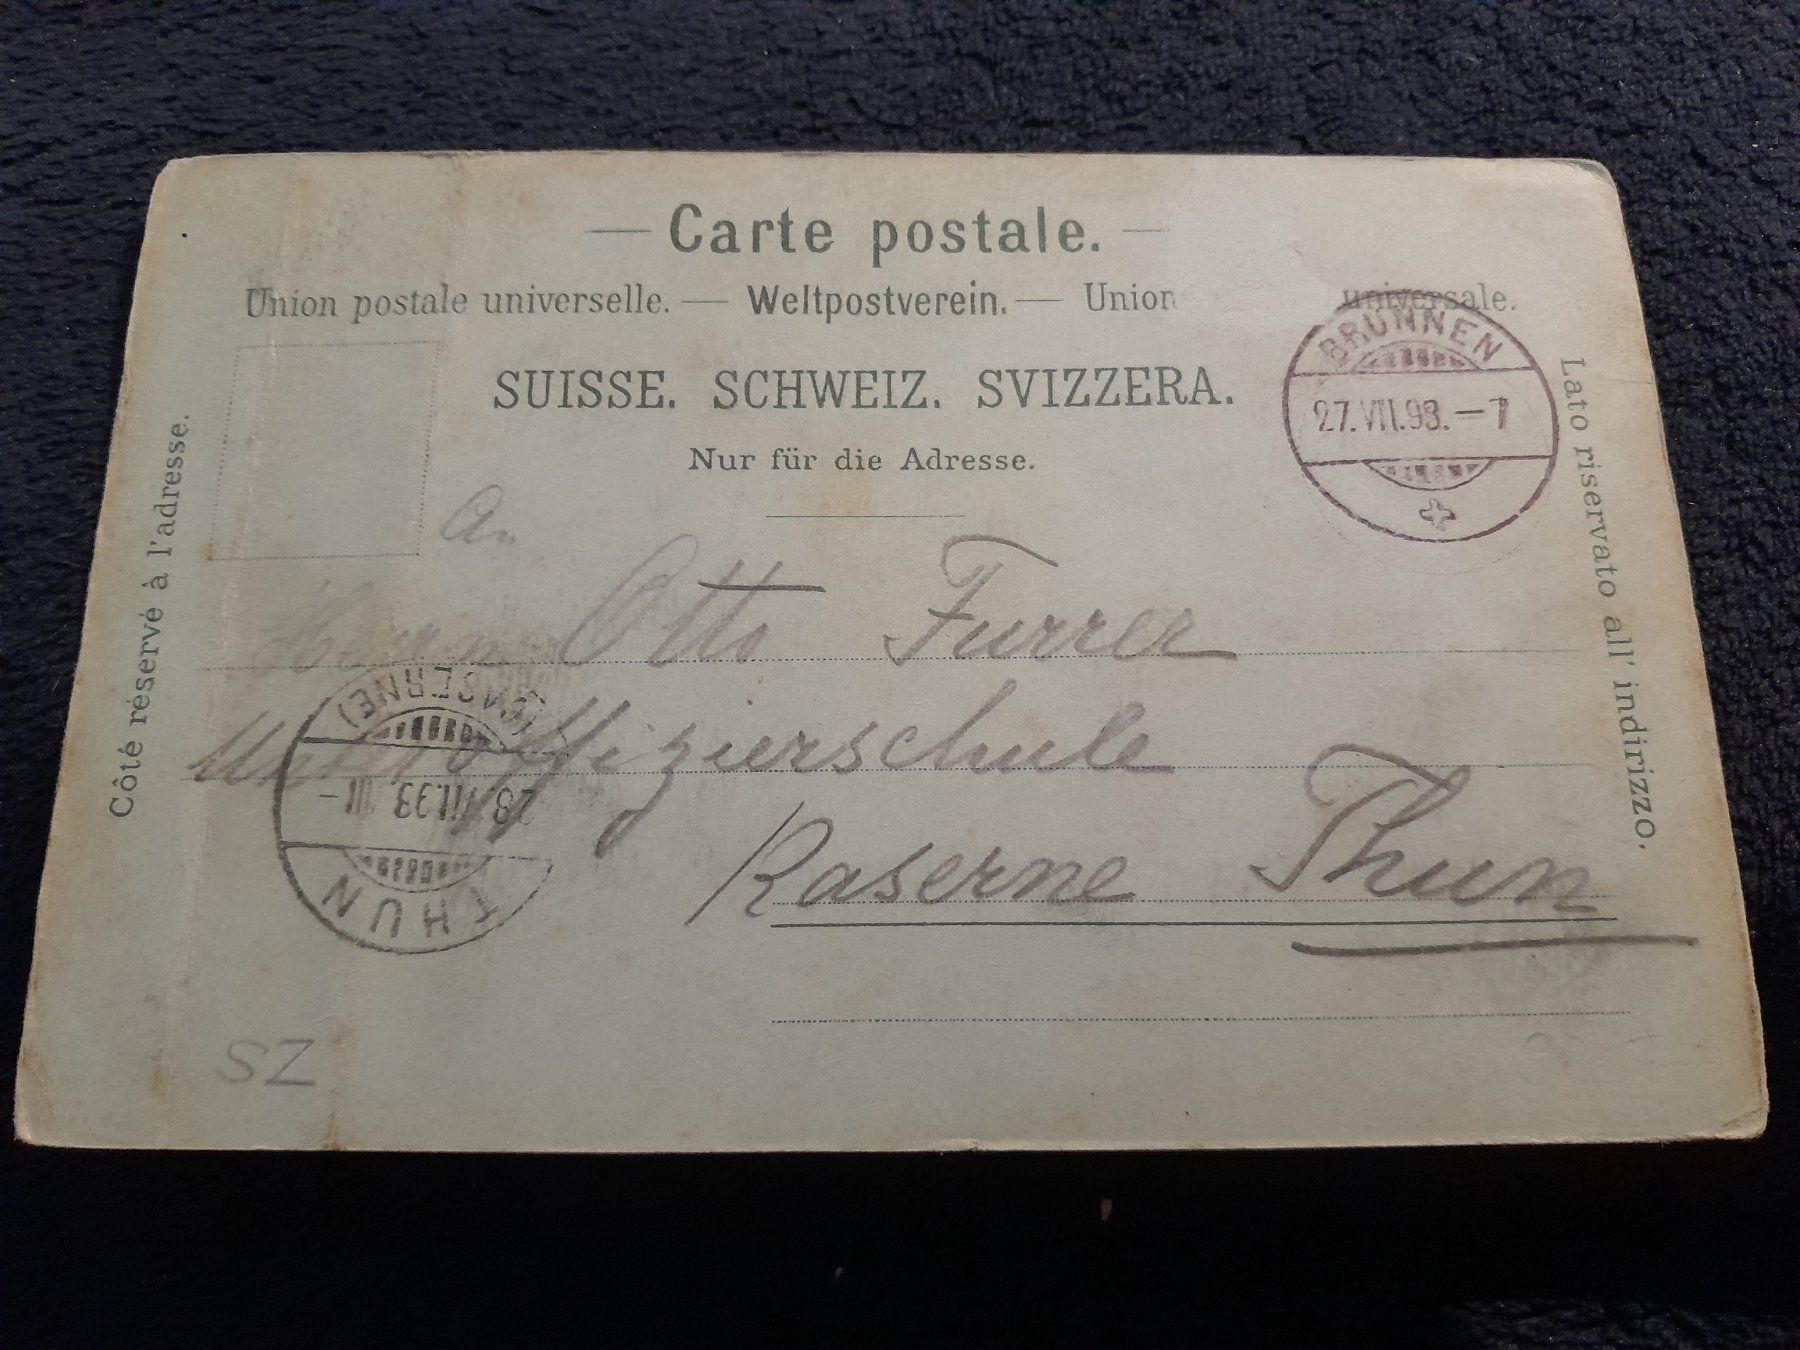 — Carte postale. —
Union postale universelle. — Weltpostverein. — Union universale.
SUISSE. SCHWEIZ. SVIZZERA.
Nur für die Adresse.
Côté réservé à l'adresse.
Lato riservato all' indirizzo.
BRUNNEN
27.VII.98.–7
An
Herrn Otto Furrer
Unteroffizierschule
Kaserne Thun
(CASERNE)
THUN
SZ